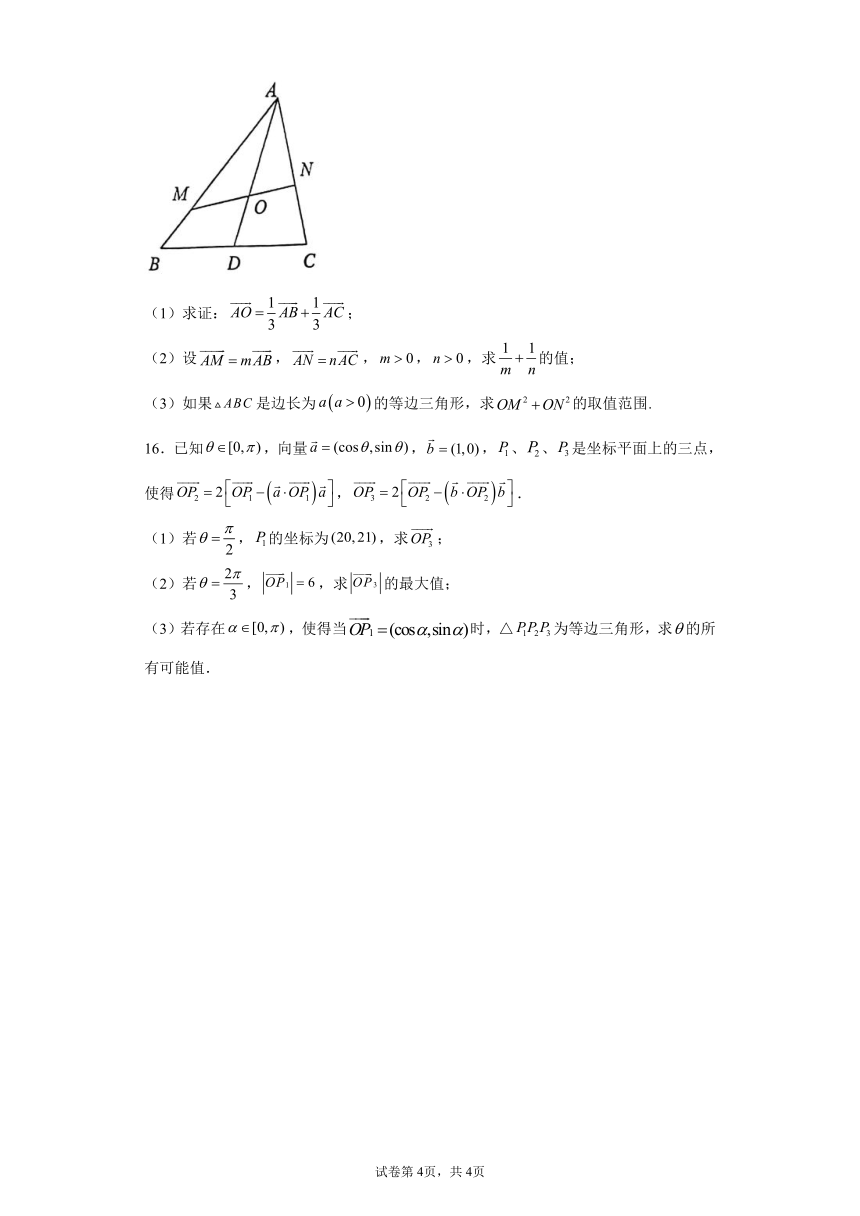 A
N
M
O
B D C
(1)求证:$\overrightarrow{AO}=\frac{1}{3}\overrightarrow{AB}+\frac{1}{3}\overrightarrow{AC}$;
(2)设$\overrightarrow{AM}=m\overrightarrow{AB}$,$\overrightarrow{AN}=n\overrightarrow{AC}$,$m>0$,$n>0$,求$\frac{1}{m}+\frac{1}{n}$的值;
(3)如果$\triangle ABC$是边长为$a(a>0)$的等边三角形,求$OM^2+ON^2$的取值范围.
16.已知$\theta\in[0,\pi)$,向量$\vec{a}=(\cos\theta,\sin\theta)$,$\vec{b}=(1,0)$,$P_1$、$P_2$、$P_3$是坐标平面上的三点,
使得$\overrightarrow{OP_2}=2\left[\overrightarrow{OP_1}-\left(\vec{a}\cdot\overrightarrow{OP_1}\right)\vec{a}\right]$,$\overrightarrow{OP_3}=2\left[\overrightarrow{OP_2}-\left(\vec{b}\cdot\overrightarrow{OP_2}\right)\vec{b}\right]$.
(1)若$\theta=\frac{\pi}{2}$,$P_1$的坐标为$(20,21)$,求$\overrightarrow{OP_3}$;
(2)若$\theta=\frac{2\pi}{3}$,$|\overrightarrow{OP_1}|=6$,求$|\overrightarrow{OP_3}|$的最大值;
(3)若存在$\alpha\in[0,\pi)$,使得当$\overrightarrow{OP_1}=(\cos\alpha,\sin\alpha)$时,△$P_1P_2P_3$为等边三角形,求$\theta$的所
有可能值.
试卷第 4页,共 4页